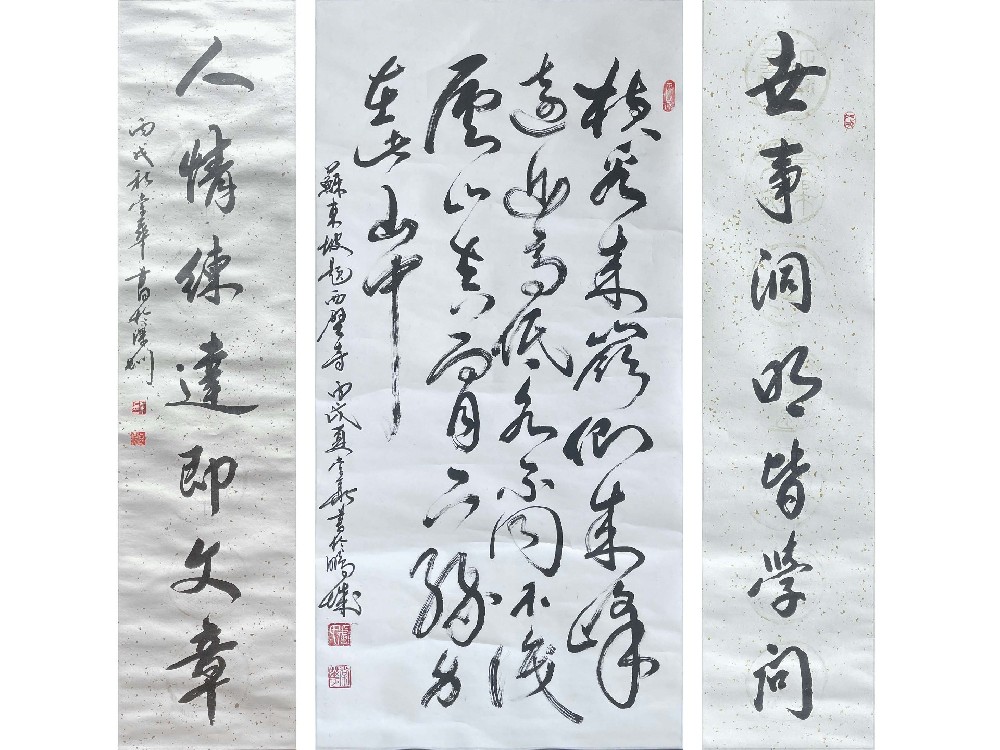 世事洞明皆学问
横看成嶺側成峰
遠近高低各不同不識
廬山真面目只緣身
在此山中
蘇東坡題西壁 丙戌夏 華書於鵬城
人情練達即文章
丙戌秋 華書於深圳